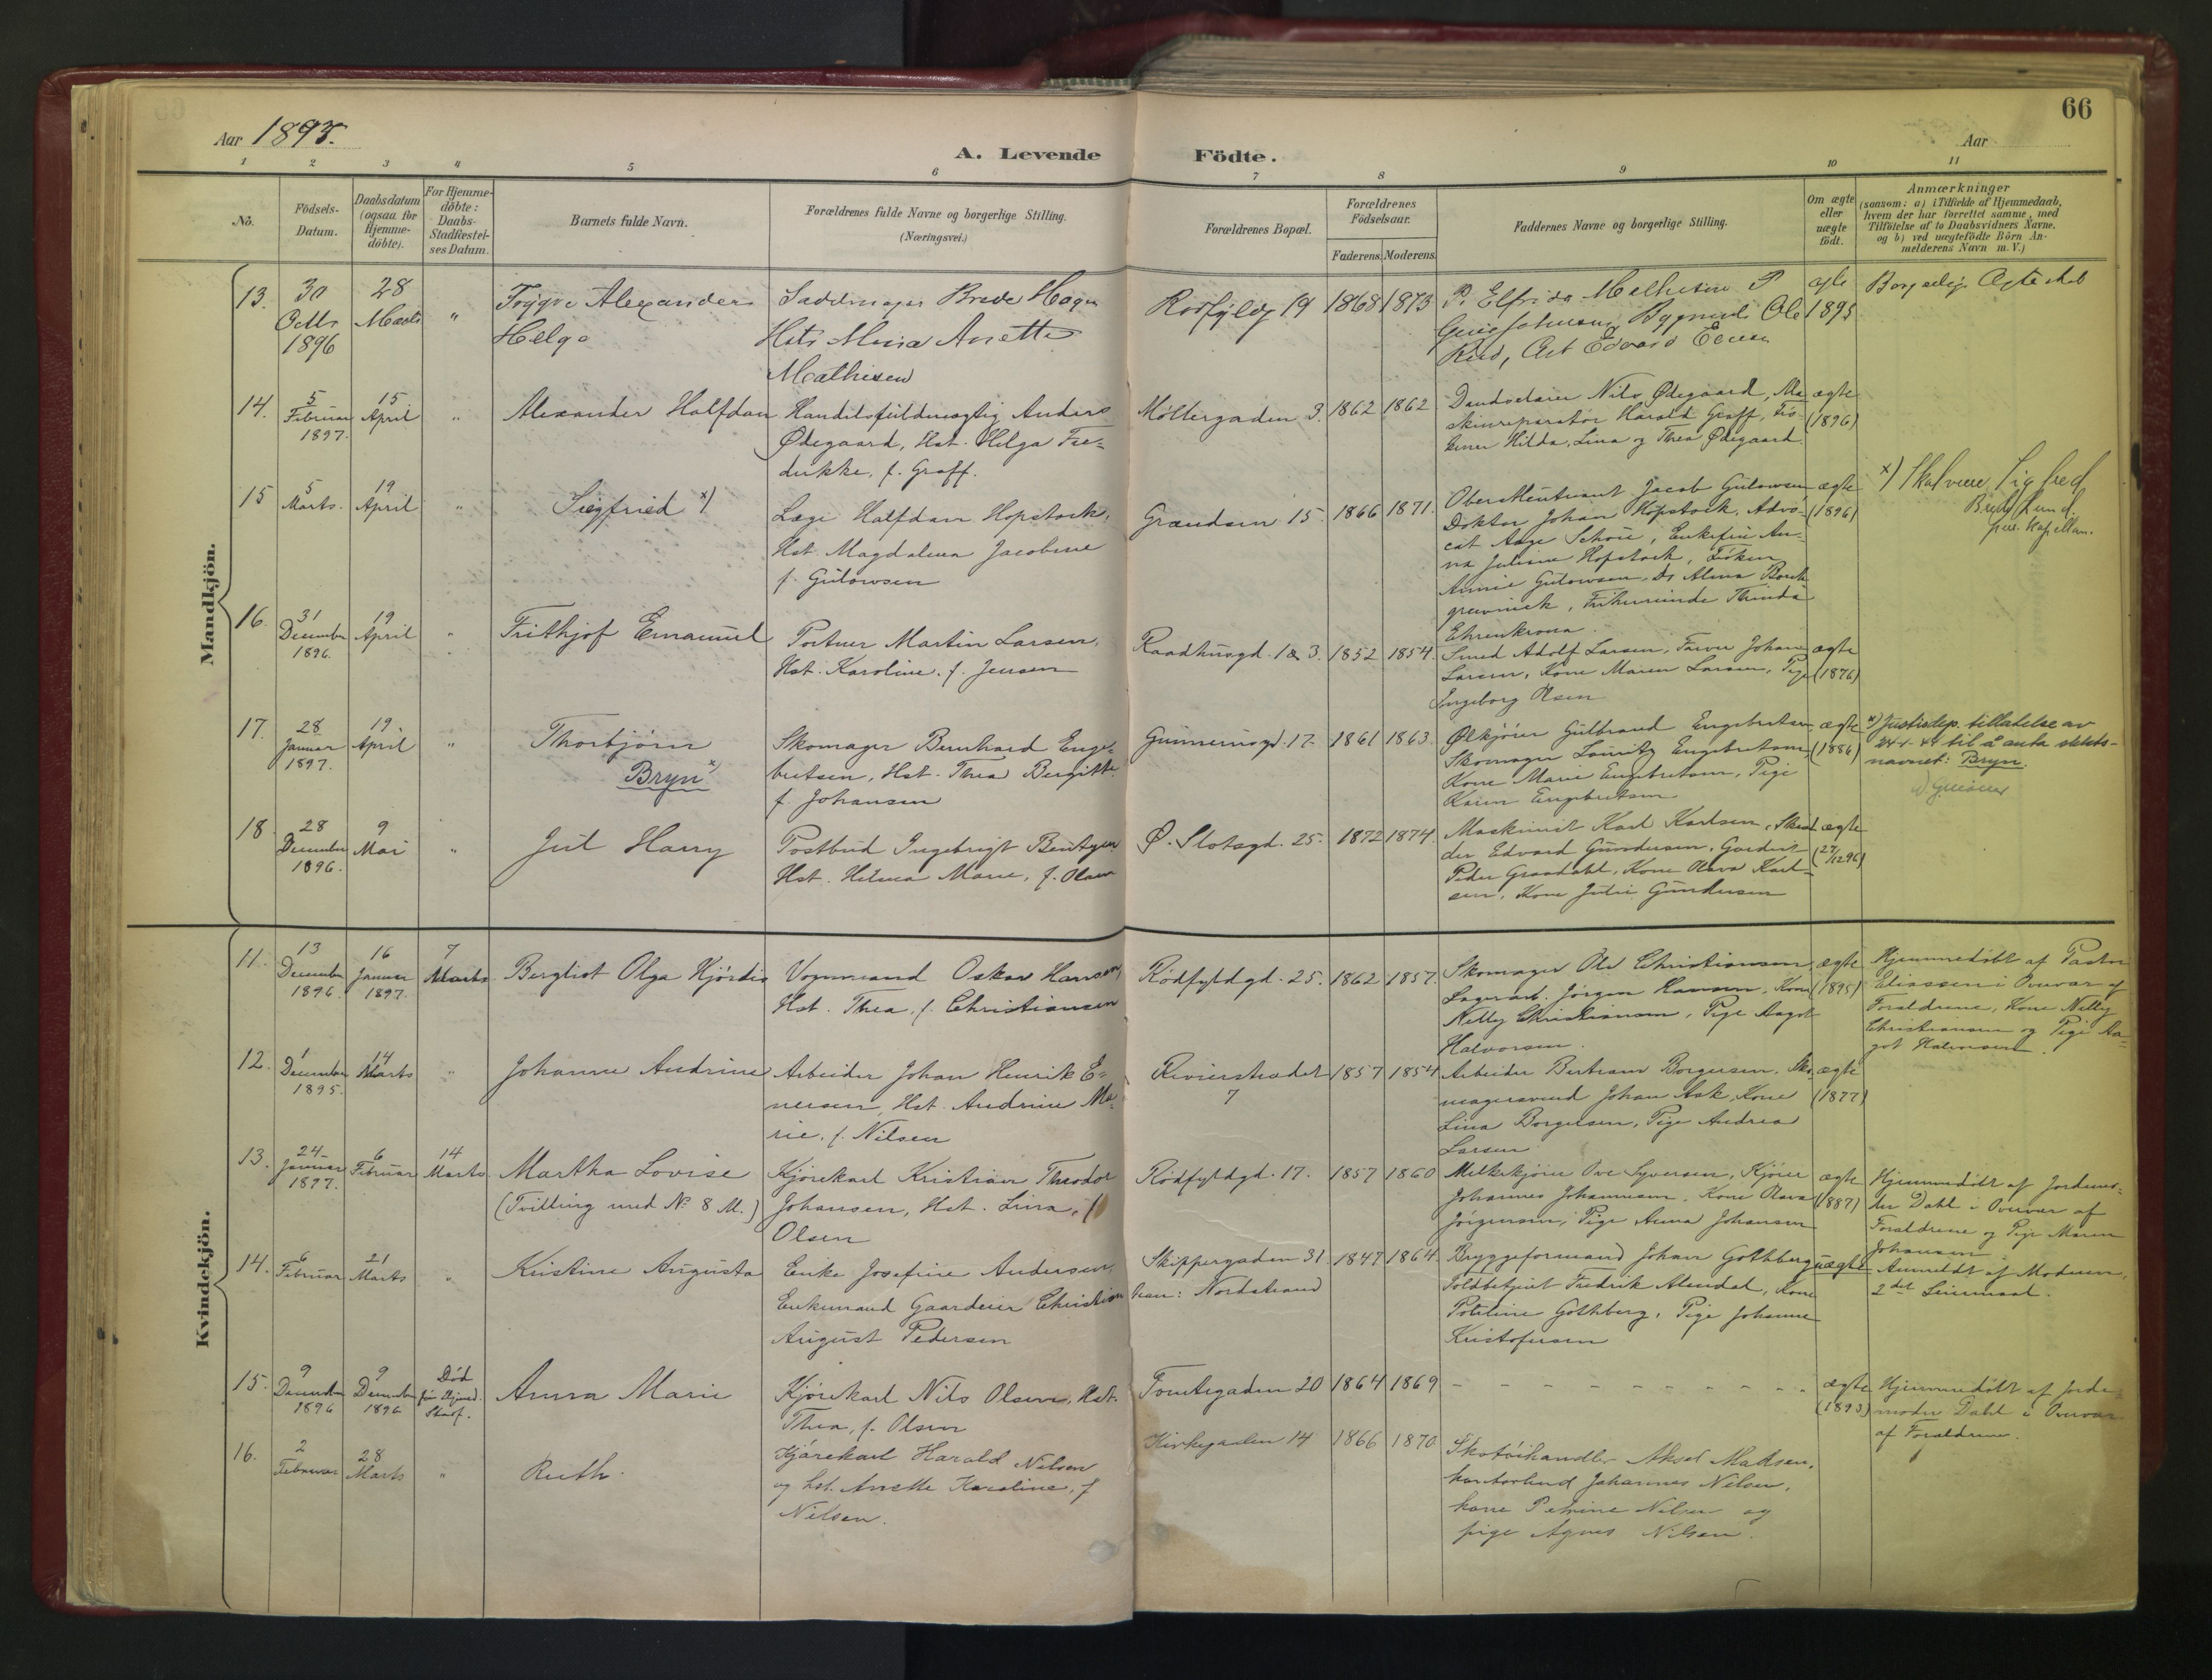 66
Aar 1897.
Aar
A. Levende Födte.
1 2 3 4 5 6 7 8 9 10 11
No.
Födsels-Datum.
Daabsdatum (ogsaa for Hjemme-döbte).
For Hjemme-döbte: Daabs-Stadfæstel-ses Datum.
Barnets fulde Navn.
Forældrenes fulde Navne og borgerlige Stilling.
(Næringsvei.)
Forældrenes Bopæl.
Forældrenes Födselsaar.
Faderens. Moderens.
Faddernes Navne og borgerlige Stilling.
Om ægte eller uægte födt.
Anmærkninger
(saasom: a) i Tilfælde af Hjemmedaab,
hvem der har forrettet samme, med
Tilföielse af to Daabsvidners Navne.
og b) ved uægtefödte Börn An-
melderens Navn m. V.)
Mandkjön.
13. 30 Octbr 1896 28 Marts " Trygve Alexander Helge
Sadelmager Brede Hagen
Hst Anette
Mathisen
19 1868 1873
Ole
Edvard
ægte 1895
14. 5 Februar 1897. 15 April " Alexander Halfdan
Handelsfuldmægtig Anders
Ødegaard, Hst. Helga Fre-
derikke, f. Graff.
Møllergaden 3. 1862 1862
Nils Ødegaard, Ma-
skinreparatør Harald Graff, Frö-
kener Hilda, Lina og Thea Ødegaard.
ægte (1896)
15 5 Marts. 19 April " Siegfried x)
Læge Halfdan Hopstock,
Hst. Magdalena Jacobine
f. Gulowsen
Grændsen 15. 1866 1871.
Jacob Gulowsen
Doktor Johan Hopstock, Advo-
cat Aage Schou, Enkefru An-
na Juliane Hopstock, Fröken
Annie Gulowsen, Ds Alma Borch-
grevinck, Friherreinde
Ehrenkrona.
ægte (1896)
x) Skal være Sigfred
Lund.
pers. Kapellan.
16. 31 December 1896. 19 April " Frithjof Emanuel
Portner Martin Larsen,
Hst. Karoline, f. Jensen
Raadhusgd. 1 & 3. 1852 1854.
Smed Adolf Larsen, Farver Johan
Larsen, Kone Maren Larsen, Pige
Ingeborg Olsen
ægte (1876)
17. 28 Januar 1897. 19 April " Thorbjørn
Bryn x)
Skomager Bernhard Enge-
bretsen, Hst. Thea Bergitte
f. Johansen
Gunnerusgd. 17. 1861 1863.
Ølkjører Gulbrand Engebretsen,
Skomager Lauritz Engebretsen,
Kone Marie Engebretsen, Pige
Karen Engebretsen
ægte (1886)
x) Justisdep. tillatelse av
24-1-44 til å anta slekts-
navnet: Bryn.
18. 28 December 1896. 9 Mai " Jul Harry
Postbud Ingebrigt Bentzen
Hst. Helma Marie, f. Olsen
Ø. Slotsgd. 25. 1872 1874.
Maskinist Karl Karlsen, Skræd-
der Edvard Gundersen, Gardist
Peder Graadahl, Kone Olava Karl-
sen, Kone Julie Gundersen
ægte (27/12 96)
Kvindekjön.
11. 13 December 1896. 16 Januar 1897. 7 Marts Bergliot Olga Hjördis
Vognmand Oskar Hansen,
Hst. Thea, f. Christiansen
Rödfyldgd. 25. 1862 1857.
Skomager Ole Christiansen,
Lagerarb. Jörgen Hansen, Kone
Nelly Christiansen, Pige Aagot
Halvorsen.
ægte (1895)
Hjemmedöbt af Pastor
Eliassen i Overvær af
Forældrene, Kone Nelly
Christiansen og Pige Aa-
got Halvorsen.
12. 1 December 1895. 14 Marts " Johanne Andrine
Arbeider Johan Henrik E-
nersen, Hst. Andrine Ma-
rie, f. Nilsen
Revierstrædet 7 1857 1854
Arbeider Bertram Borgersen, Sko-
magersvend Johan Ask, Kone
Lina Borgersen, Pige Andrea
Larsen
ægte (1877)
13. 24 Januar 1897. 6 Februar 14 Marts Martha Lovise
(Tvilling med No 8 M.)
Kjörekarl Kristian Theodor
Johansen, Hst. Lina, f.
Olsen
Rödfyldgd. 17. 1857 1860
Melkekjører Ove Syversen, Kjører
Johannes Johannesen, Kone Olava
Jörgensen, Pige Anna Johansen
ægte (1887)
Hjemmedöbt af Jordemo-
der Dahl i Overvær af
Forældrene og Pige Maren
Johansen.
14. 6 Februar 21 Marts " Kristine Augusta
Enke Josefine Andersen,
Enkemand Gaardeier Christian
August Pedersen
Skippergaden 31
han: Nordstrand
1847 1864.
Bryggeformand Johan Gothberg,
Toldbetjent Fredrik Alendal, Kone
Gothberg, Pige Johanne
Kristofersen
uægte
Anmeldt af Moderen,
2det Leiermaal.
15. 9 December 1896 9 December 1896 Död för Hjemmed. Stadf. Anna Marie
Kjörekarl Nils Olsen, Hst.
Thea, f. Olsen
Tomtegaden 20 1864 1869
- - - - - - - - - -
ægte (1893)
Hjemmedöbt af Jorde-
moder Dahl i Overvær
af Forældrene.
16. 2 Februar 28 Marts " Ruth.
Kjørekarl Harald Nilsen
og hst. Anette Karoline, f
Nilsen.
Kirkegaden 14 1866 1870
Skotöihandler Aksel Madsen,
kontorbud Johannes Nilsen,
kone Petrine Nilsen og
pige Agnes Nilsen.